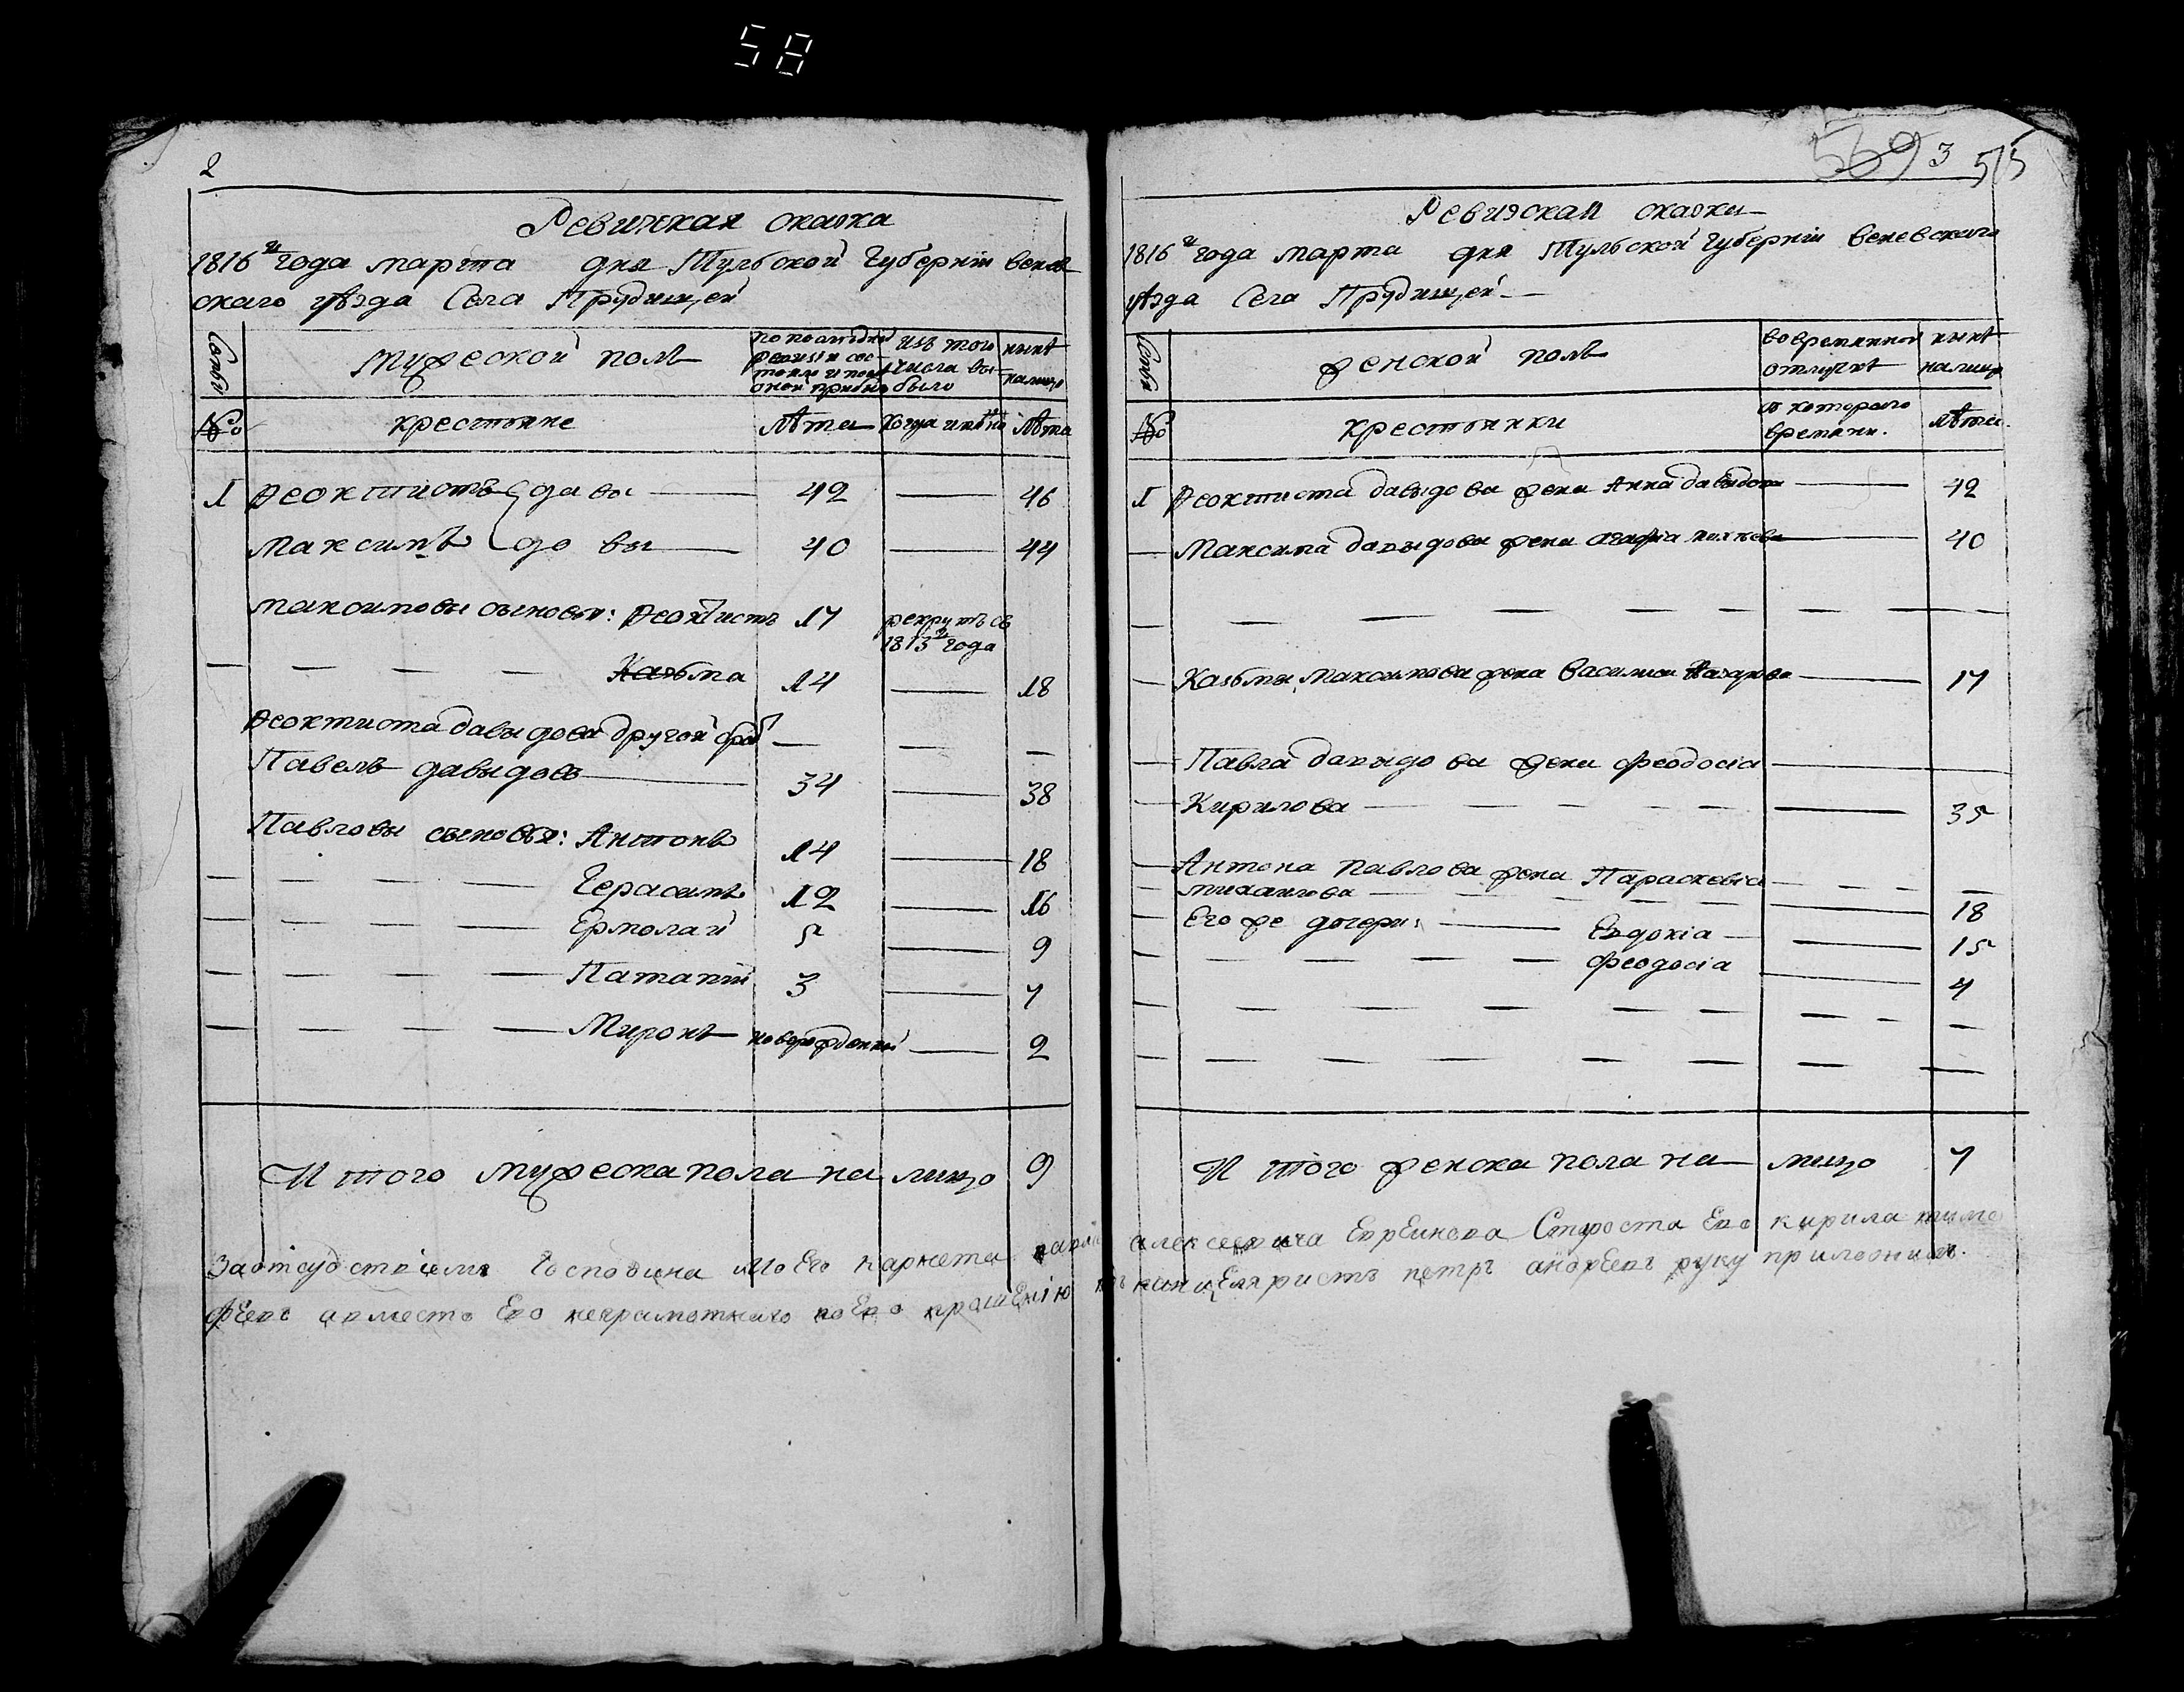 58
2
Ревижская сказка
1816го года марта дня Тульской Губернiи венев
скаго уѣзда Села Прудищей
Семьи
мужеской полъ
по последней ревизiи сос-
тояло и после
оной прибыло
изъ того
числа вы-
было
нынѣ
налицо
№
крестьяне
лѣта
Когда имянно
лѣта
1 Феоктистъ давы 42 46
Максимъ до вы 40 44
максимовы сыновья: Феоктистъ 17 рекрутъ съ
1813го года
Казьма 14 18
Феоктиста давыдова другой брат
Павелъ давыдовъ 34 38
Павловы сыновья: Антонъ 14 18
Герасимъ 12 16
Ермолай 5 9
Патапiй 3 7
Миронъ новорожденный 2
И того мужеска пола на лицо 9
569 3 515
Ревизская сказка
1816го года марта дня Тульской Губернiи веневскаго
уѣзда Села Прудищей
Семья
женской полъ
во временной
отлучкѣ
нынѣ
налицо
№
крестьянки
съ котораго
времяни.
лѣта.
1 Феоктиста давыдова жена Анна давыдова 42
Максима давыдова жена агафiа 40
Казьмы максимова жена Василиса Назарова 17
Павла давыдова жена Феодосiа
Кирилова 35
Антона павлова жена Параскевiа
михаилова 18
Его же дочери: Евдокiа 15
Феодосiа 4
И того женска пола на лицо 7
Заотсудствiемъ Господина моего карнета павла алексеевича Евреинова Староста Ево кирила тимо
феевъ авместо Ево неграмотнаго поЕво прошенiю канцеляристъ петръ андреевъ руку приложилъ.